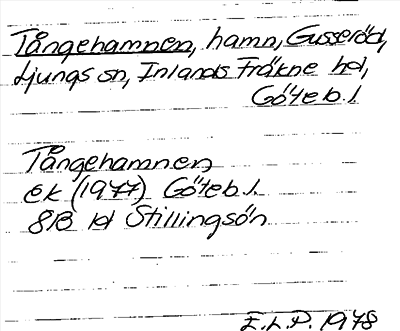 Tångehamnen, hamn, Gusseröd,
Ljungs sn, Inlands Fräkne hd,
Göteb. l.
Tångehamnen
ek (1977) Göteb. l.
8B 1d Stillingsön
E.L.P. 1978